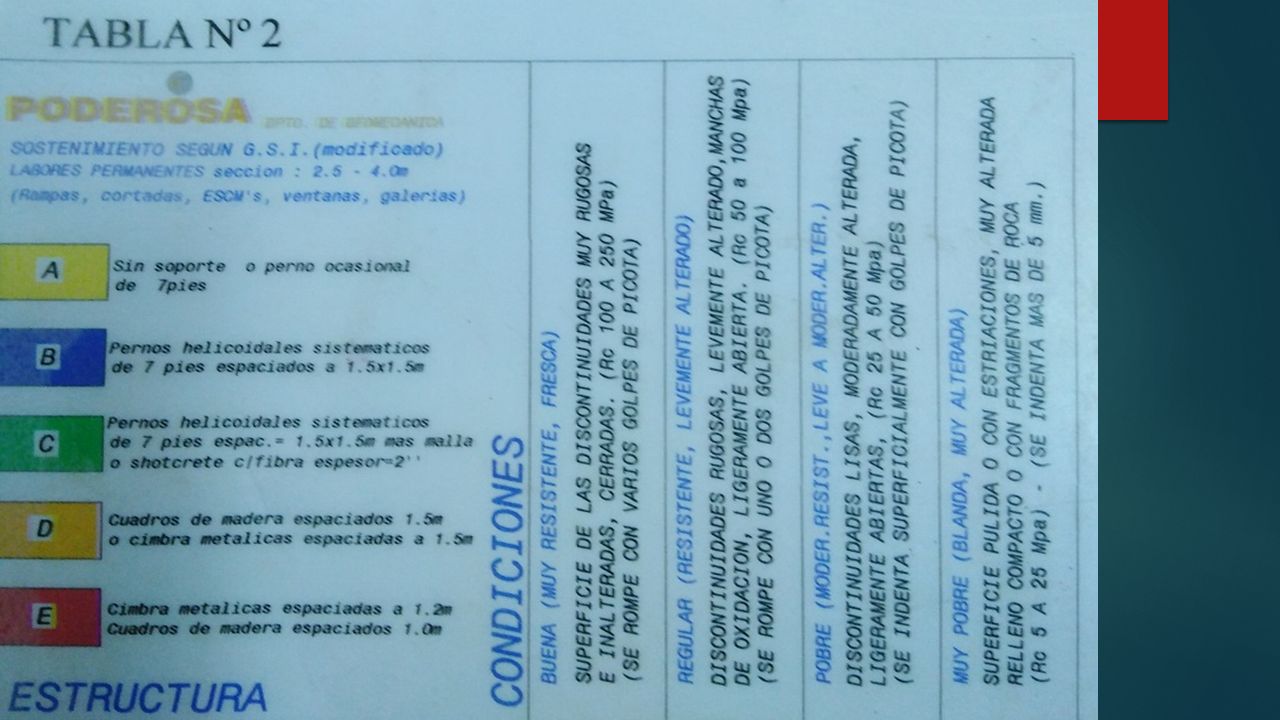 TABLA Nº 2
PODEROSA DPTO. DE GEOMECANICA
SOSTENIMIENTO SEGUN G.S.I.(modificado)
LABORES PERMANENTES seccion : 2.5 - 4.0m
(Rampas, cortadas, ESCM's, ventanas, galerias)
A
Sin soporte o perno ocasional
de 7pies
B
Pernos helicoidales sistematicos
de 7 pies espaciados a 1.5x1.5m
C
Pernos helicoidales sistematicos
de 7 pies espac.= 1.5x1.5m mas malla
o shotcrete c/fibra espesor=2''
D
Cuadros de madera espaciados 1.5m
o cimbra metalicas espaciadas a 1.5m
E
Cimbra metalicas espaciadas a 1.2m
Cuadros de madera espaciados 1.0m
ESTRUCTURA
CONDICIONES
BUENA (MUY RESISTENTE, FRESCA)
SUPERFICIE DE LAS DISCONTINUIDADES MUY RUGOSAS
E INALTERADAS, CERRADAS. (Rc 100 A 250 MPa)
(SE ROMPE CON VARIOS GOLPES DE PICOTA)
REGULAR (RESISTENTE, LEVEMENTE ALTERADO)
DISCONTINUIDADES RUGOSAS, LEVEMENTE ALTERADO,MANCHAS
DE OXIDACION, LIGERAMENTE ABIERTA. (Rc 50 a 100 Mpa)
(SE ROMPE CON UNO O DOS GOLPES DE PICOTA)
POBRE (MODER.RESIST.,LEVE A MODER.ALTER.)
DISCONTINUIDADES LISAS, MODERADAMENTE ALTERADA,
LIGERAMENTE ABIERTAS, (Rc 25 A 50 Mpa)
(SE INDENTA SUPERFICIALMENTE CON GOLPES DE PICOTA)
MUY POBRE (BLANDA, MUY ALTERADA)
SUPERFICIE PULIDA O CON ESTRIACIONES, MUY ALTERADA
RELLENO COMPACTO O CON FRAGMENTOS DE ROCA
(Rc 5 A 25 Mpa) - (SE INDENTA MAS DE 5 mm.)